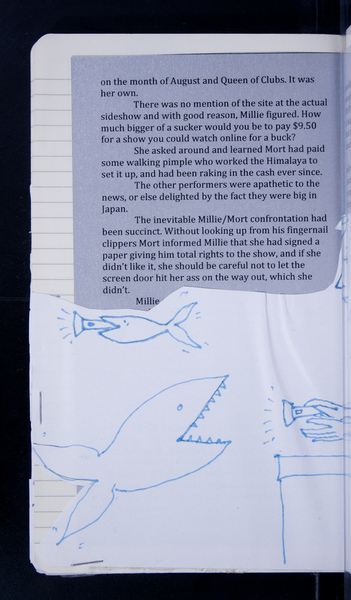 on the month of August and Queen of Clubs. It was
her own.
There was no mention of the site at the actual
sideshow and with good reason, Millie figured. How
much bigger of a sucker would you be to pay $9.50
for a show you could watch online for a buck?
She asked around and learned Mort had paid
some walking pimple who worked the Himalaya to
set it up, and had been raking in the cash ever since.
The other performers were apathetic to the
news, or else delighted by the fact they were big in
Japan.
The inevitable Millie/Mort confrontation had
been succinct. Without looking up from his fingernail
clippers Mort informed Millie that she had signed a
paper giving him total rights to the show, and if she
didn't like it, she should be careful not to let the
screen door hit her ass on the way out, which she
didn't.
Millie